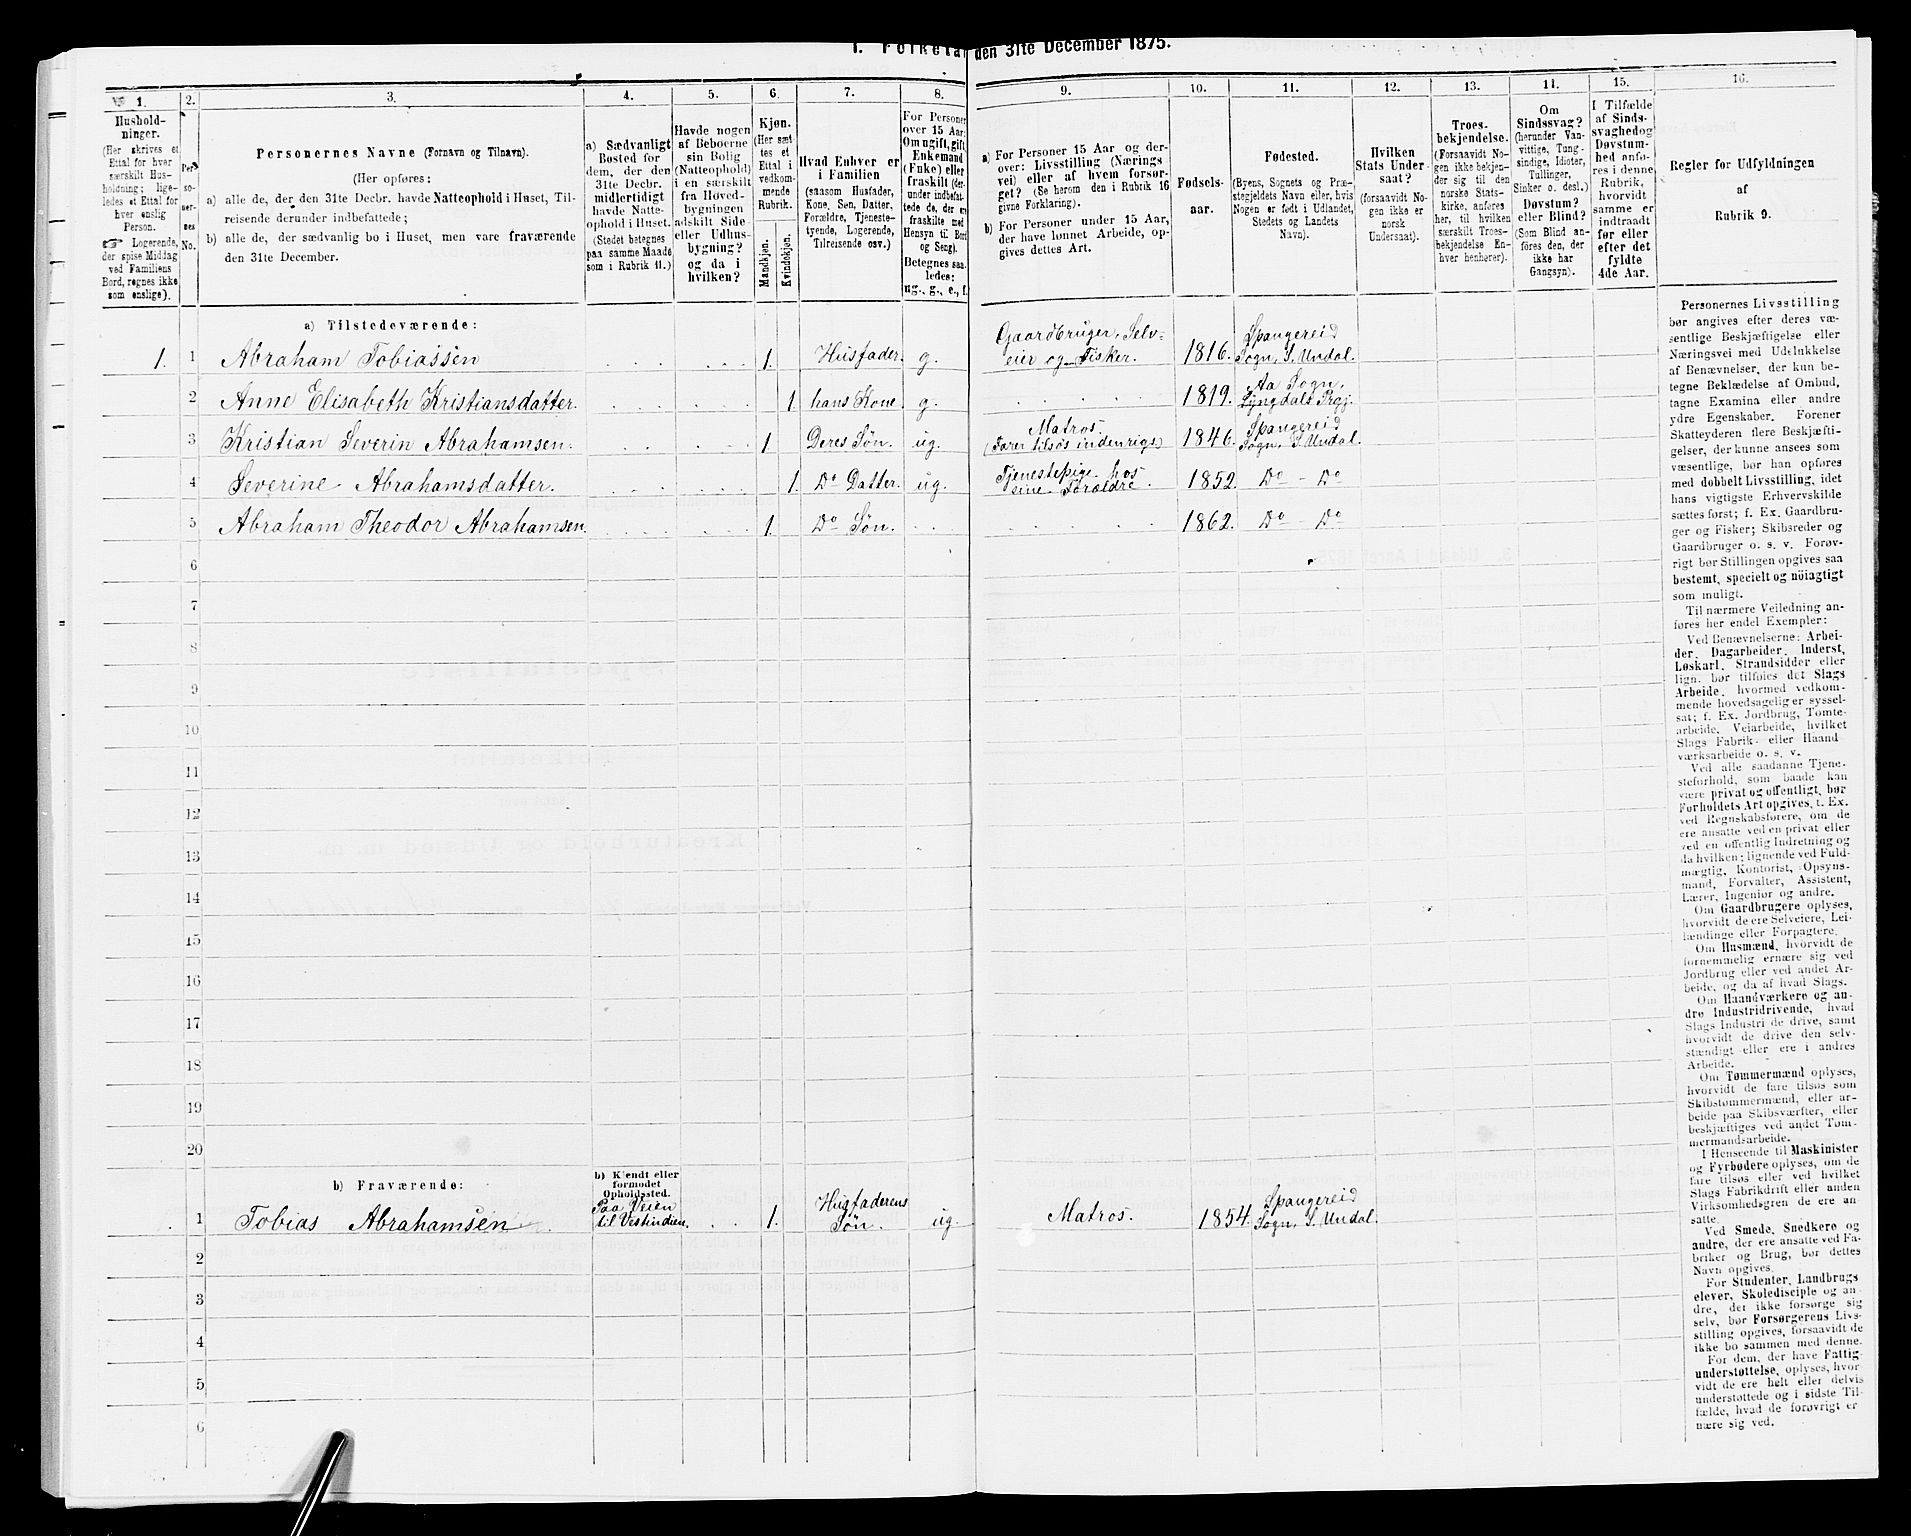 1. Folketal den 31te December 1875.
1.
Hushold-
ninger.
(Her skrives et
Ettal for hver
særskilt Hus-
holdning; lige-
ledes et Ettal for
hver enslig
Person.
☞ Logerende,
der spise Middag
ved Familiens
Bord, regnes ikke
som enslige).
2.
Per-
so-
ner-
nes
No.
3.
Personernes Navne (Fornavn og Tilnavn).
(Her opføres:
a) alle de, der den 31te Decbr. havde Natteophold i Huset, Til-
reisende derunder indbefattede;
b) alle de, der sædvanlig bo i Huset, men vare fraværende
den 31te December.
4.
a) Sædvanligt
Bosted for
dem, der den
31te Decbr.
midlertidigt
havde Natte-
ophold i Huset.
(Stedet betegnes
paa samme Maade
som i Rubrik 11.)
5.
Havde nogen
af Beboerne
sin Bolig
(Natteophold)
i en særskilt
fra Hoved-
bygningen
adskilt Side-
eller Udhus-
bygning?
og da i
hvilken?
6.
Kjøn.
(Her sæt-
tes et
Ettal i
vedkom-
mende
Rubrik.)
Mandkjøn.
Kvindekjøn.
7.
Hvad Enhver er
i Familien
(saasom Husfader,
Kone, Søn, Datter,
Forældre, Tjeneste-
tyende, Logerende,
Tilreisende osv.)
8.
For Personer
over 15 Aar:
Om ugift, gift,
Enkemand
(Enke) eller
fraskilt (der-
under indbefat-
tede de, der ere
fraskilte med
Hensyn til Bord
og Seng).
Betegnes saa-
ledes:
ug., g., e., f.
9.
a) For Personer 15 Aar og der-
over: Livsstilling (Nærings-
vei) eller af hvem forsør-
get? (Se herom den i Rubrik 16
givne Forklaring.)
b) For Personer under 15 Aar,
der have lønnet Arbeide, op-
gives dettes Art.
10.
Fødsels-
aar.
11.
Fødested.
(Byens, Sognets og Præ-
stegjeldets Navn eller, hvis
Nogen er født i Udlandet,
Stedets og Landets
Navn).
12.
Hvilken
Stats Under-
saat?
(forsaavidt No-
gen ikke er
norsk
Undersaat).
13.
Troes-
bekjendelse.
(Forsaavidt No-
gen ikke bekjen-
der sig til den
norske Stats-
kirke, anføres
her, til hvilken
særskilt Troes-
bekjendelse En-
hver henhører).
14.
Om
Sindssvag?
(herunder Van-
vittige, Tung-
sindige, Idioter,
Tullinger,
Sinker o. desl.)
Døvstum?
eller Blind?
(Som Blind an-
føres den, der
ikke har
Gangsyn).
15.
I Tilfælde
af Sinds-
svaghed og
Døvstum-
hed anfø-
res i denne
Rubrik,
hvorvidt
samme er
indtraadt
før eller
efter det
fyldte
4de Aar.
16.
Regler for Udfyldningen
af
Rubrik 9.
a) Tilstedeværende:
1. 1 Abraham Tobiassen 1. Husfader. g. Gaardbruger, Selv-
eier og Fisker. 1816. Spangereid
Sogn, S. Undal.
2 Anne Elisabeth Kristiansdatter. 1. hans Kone. g. 1819. Aa Sogn,
Lyngdals Prgj.
3 Kristian Severin Abrahamsen. 1 Deres Søn. ug. Matros.
(Farer tilsøs indenrigs) 1846. Spangereid
Sogn, S. Undal.
4 Severine Abrahamsdatter. 1. Do Datter. ug. Tjenestepige hos
sine Forældre. 1852. Do - Do
5 Abraham Theodor Abrahamsen. 1. Do Søn. 1862. Do - Do
6
7
8
9
10
11
12
13
14
15
16
17
18
19
20
b) Fraværende:
b) Kjendt eller
formodet
Opholdssted.
1 Tobias Abrahamsen Paa Veien
til Vestindien. 1. Husfaderens
Søn. ug. Matros. 1854. Spangereid
Sogn, S. Undal.
2
3
4
5
6
Personernes Livsstilling
bør angives efter deres væ-
sentlige Beskjæftigelse eller
Næringsvei med Udelukkelse
af Benævnelser, der kun be-
tegne Beklædelse af Ombud,
tagne Examina eller andre
ydre Egenskaber. Forener
Skatteyderen flere Beskjæfti-
gelser, der kunne ansees som
væsentlige, bør han opføres
med dobbelt Livsstilling, idet
hans vigtigste Erhvervskilde
sættes først; f. Ex. Gaardbru-
ger og Fisker; Skibsreder og
Gaardbruger o. s. v. Forøv-
rigt bør Stillingen opgives saa
bestemt, specielt og nöiagtigt
som muligt.
Til nærmere Veiledning an-
føres her endel Exempler:
Ved Benævnelserne: Arbei-
der, Dagarbeider, Inderst,
Løskarl, Strandsidder eller
lign. bør tilføies det Slags
Arbeide, hvormed vedkom-
mende hovedsagelig er syssel-
sat; f. Ex. Jordbrug, Tomte-
arbeide, Veiarbeide, hvilket
Slags Fabrik- eller Haand-
værksarbeide o. s. v.
Ved alle saadanne Tjene-
steforhold, som baade kan
være privat og offentligt, bør
Forholdets Art opgives, t. Ex.
ved Regnskabsførere, om de
ere ansatte ved en privat eller
ved en offentlig Indretning og
da hvilken; lignende ved Fuld-
mægtig, Kontorist, Opsyns-
mand, Forvalter, Assistent,
Lærer, Ingeniør og andre.
Om Gaardbrugere oplyses,
hvorvidt de ere Selveiere, Lei-
lændinge eller Forpagtere.
Om Husmænd, hvorvidt de
fornemmelig ernære sig ved
Jordbrug eller ved andet Ar-
beide, og da af hvad Slags.
Om Haandværkere og an-
dre Industridrivende, hvad
Slags Industri de drive, samt
hvorvidt de drive den selv-
stændigt eller ere i andres
Arbeide.
Om Tømmermænd oplyses,
hvorvidt de fare tilsøs som
Skibstømmermænd, eller ar-
beide paa Skibsværfter, eller
beskjæftiges ved andet Tøm-
mermandsarbeide.
I Henseende til Maskinister
og Fyrbødere oplyses, om de
fare tilsøs eller ved hvilket
Slags Fabrikdrift eller anden
Virksomhedsgren de ere an-
satte.
Ved Smede, Snedkere og
andre, der ere ansatte ved Fa-
briker og Brug, bør dettes
Navn opgives.
For Studenter, Landbrugs-
elever, Skoledisciple og an-
dre, der ikke forsørge sig
selv, bør Forsørgerens Livs-
stilling opgives, forsaavidt de
ikke bo sammen med denne.
For dem, der have Fattig-
understøttelse, oplyses, hvor-
vidt de ere helt eller delvis
understøttede og i sidste Til-
fælde, hvad de forøvrigt er-
nære sig ved.